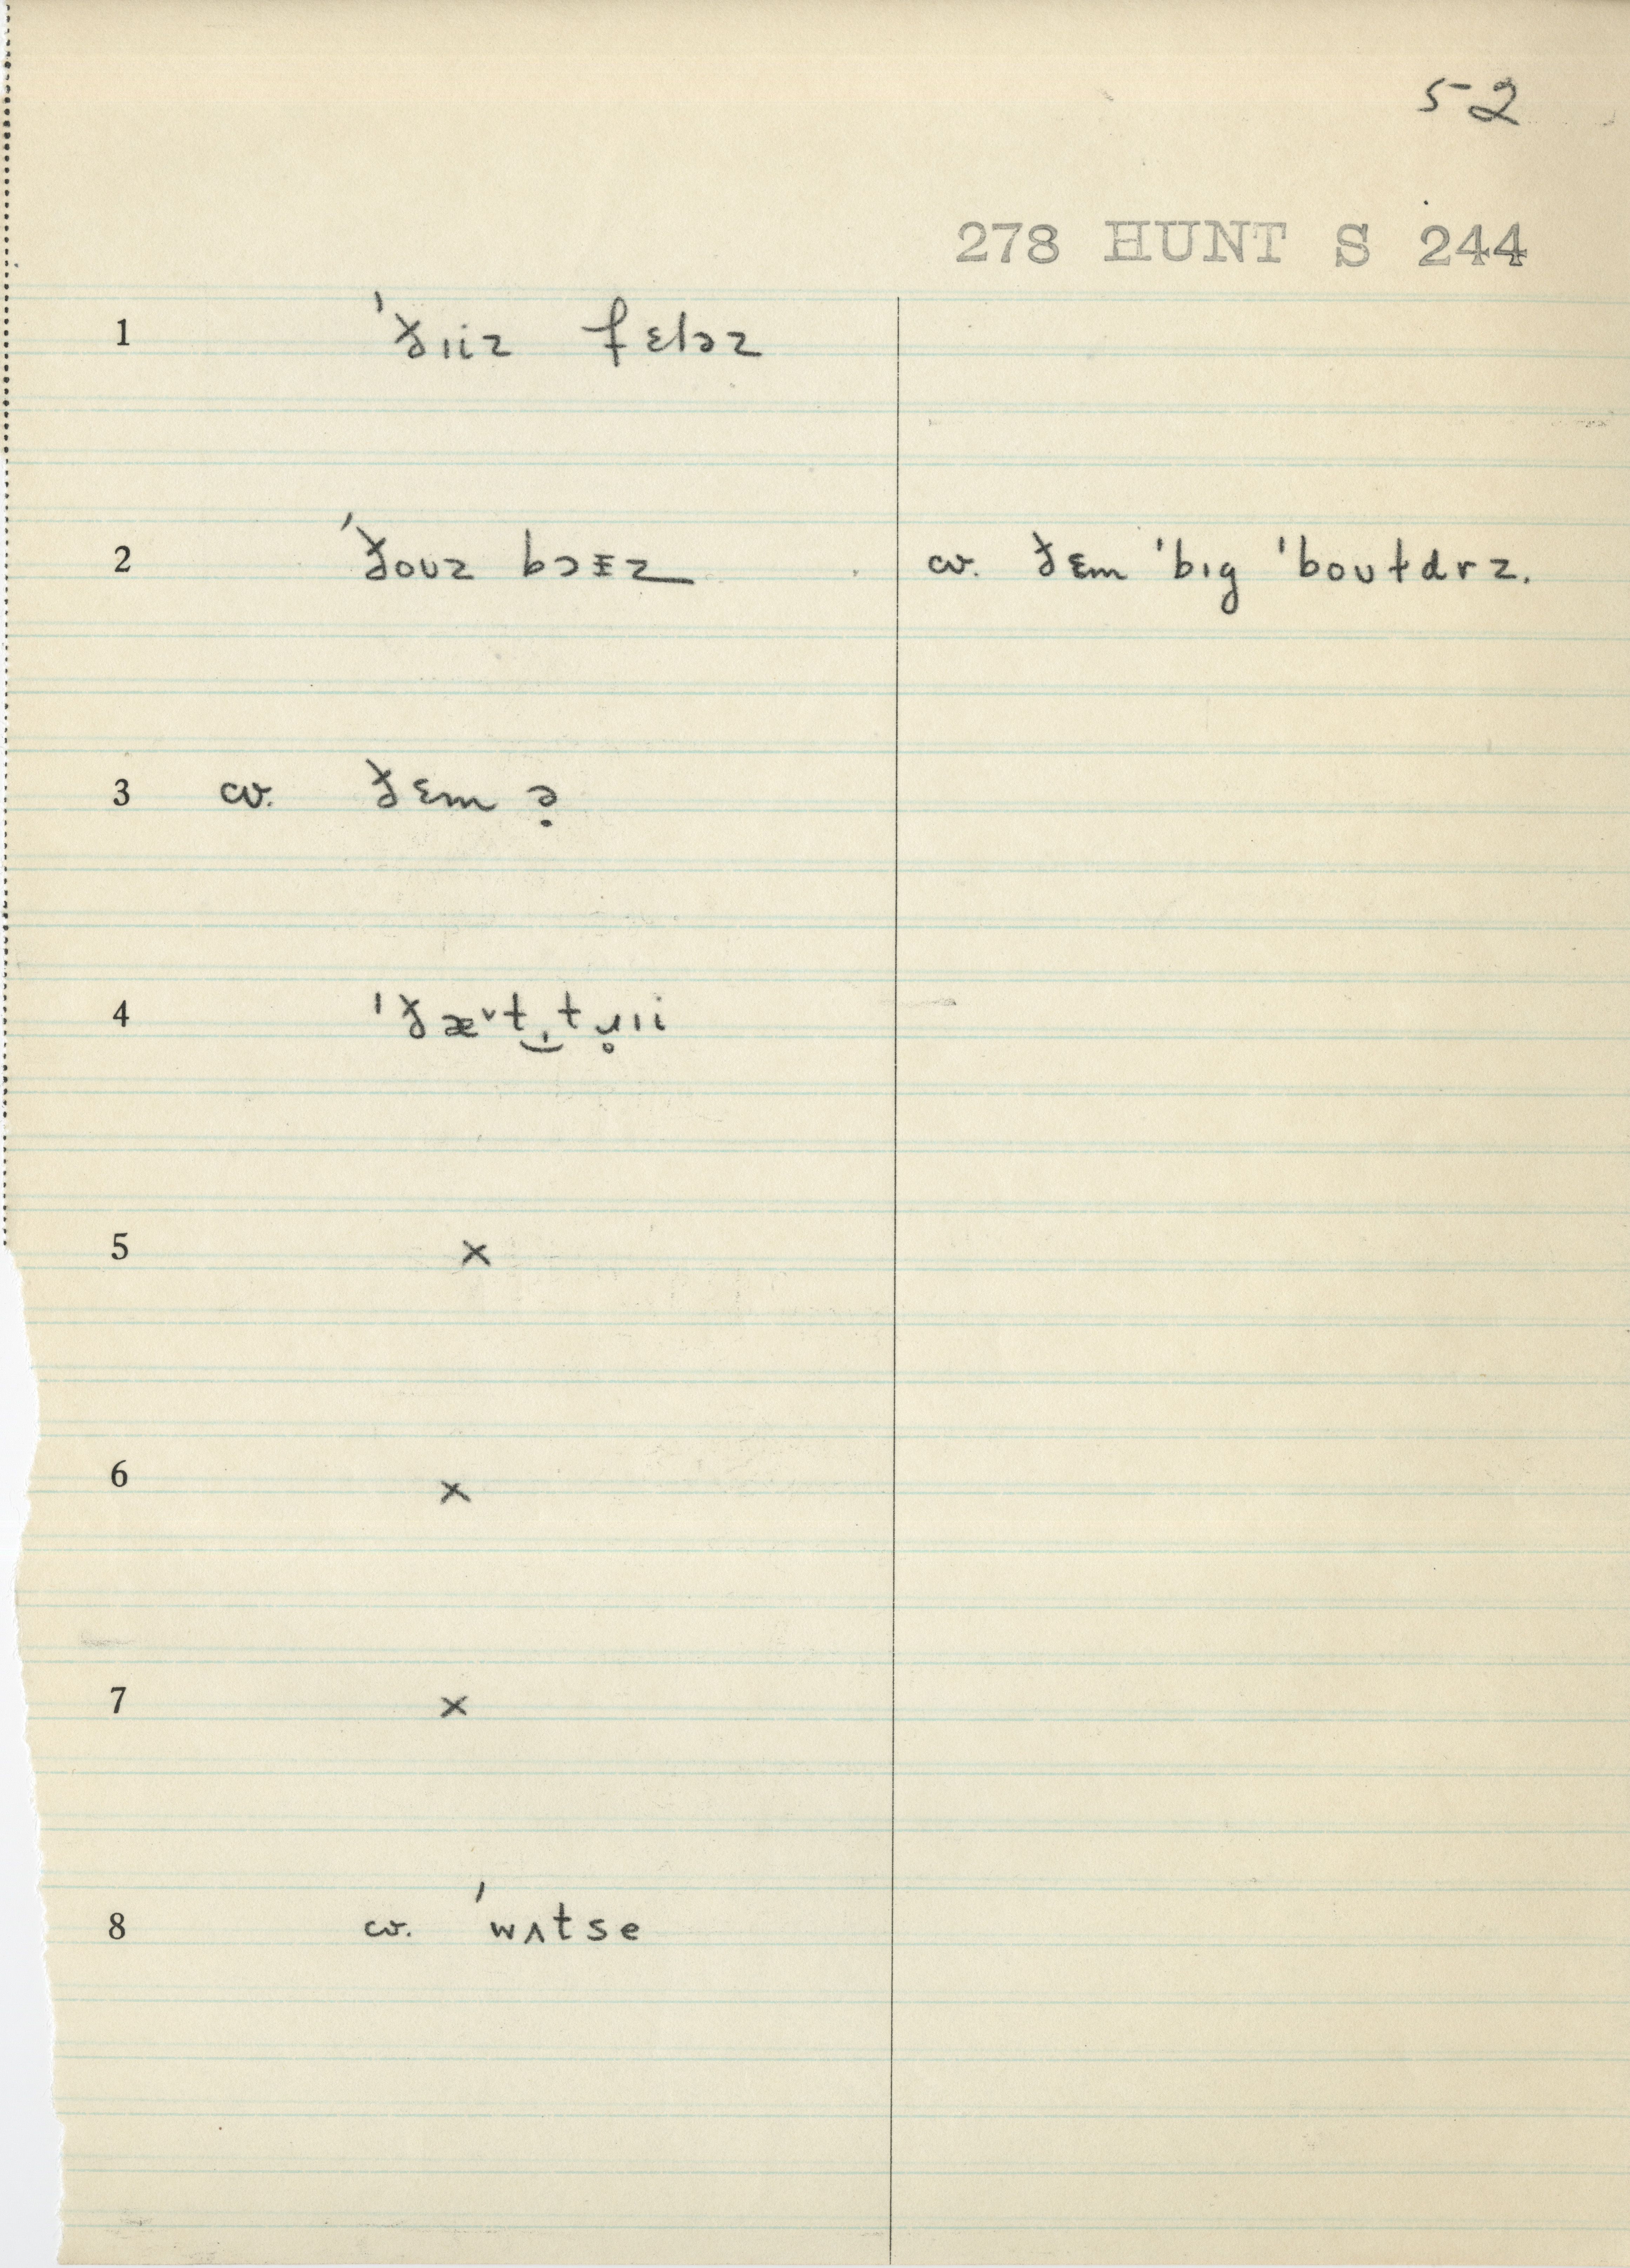 52
278 HUNT S 244
1 ˈðɪiz fɛləz
2 ˈðoʊz bɔɪz cv. ðɛm ˈbɪg ˈboʊɫdrz.
3 cv. ðɛm ə̣
4 ˈðæ˅t‿t ɹ̥ɪi
5 ×
6 ×
7 ×
8 cv. ˈwʌtse